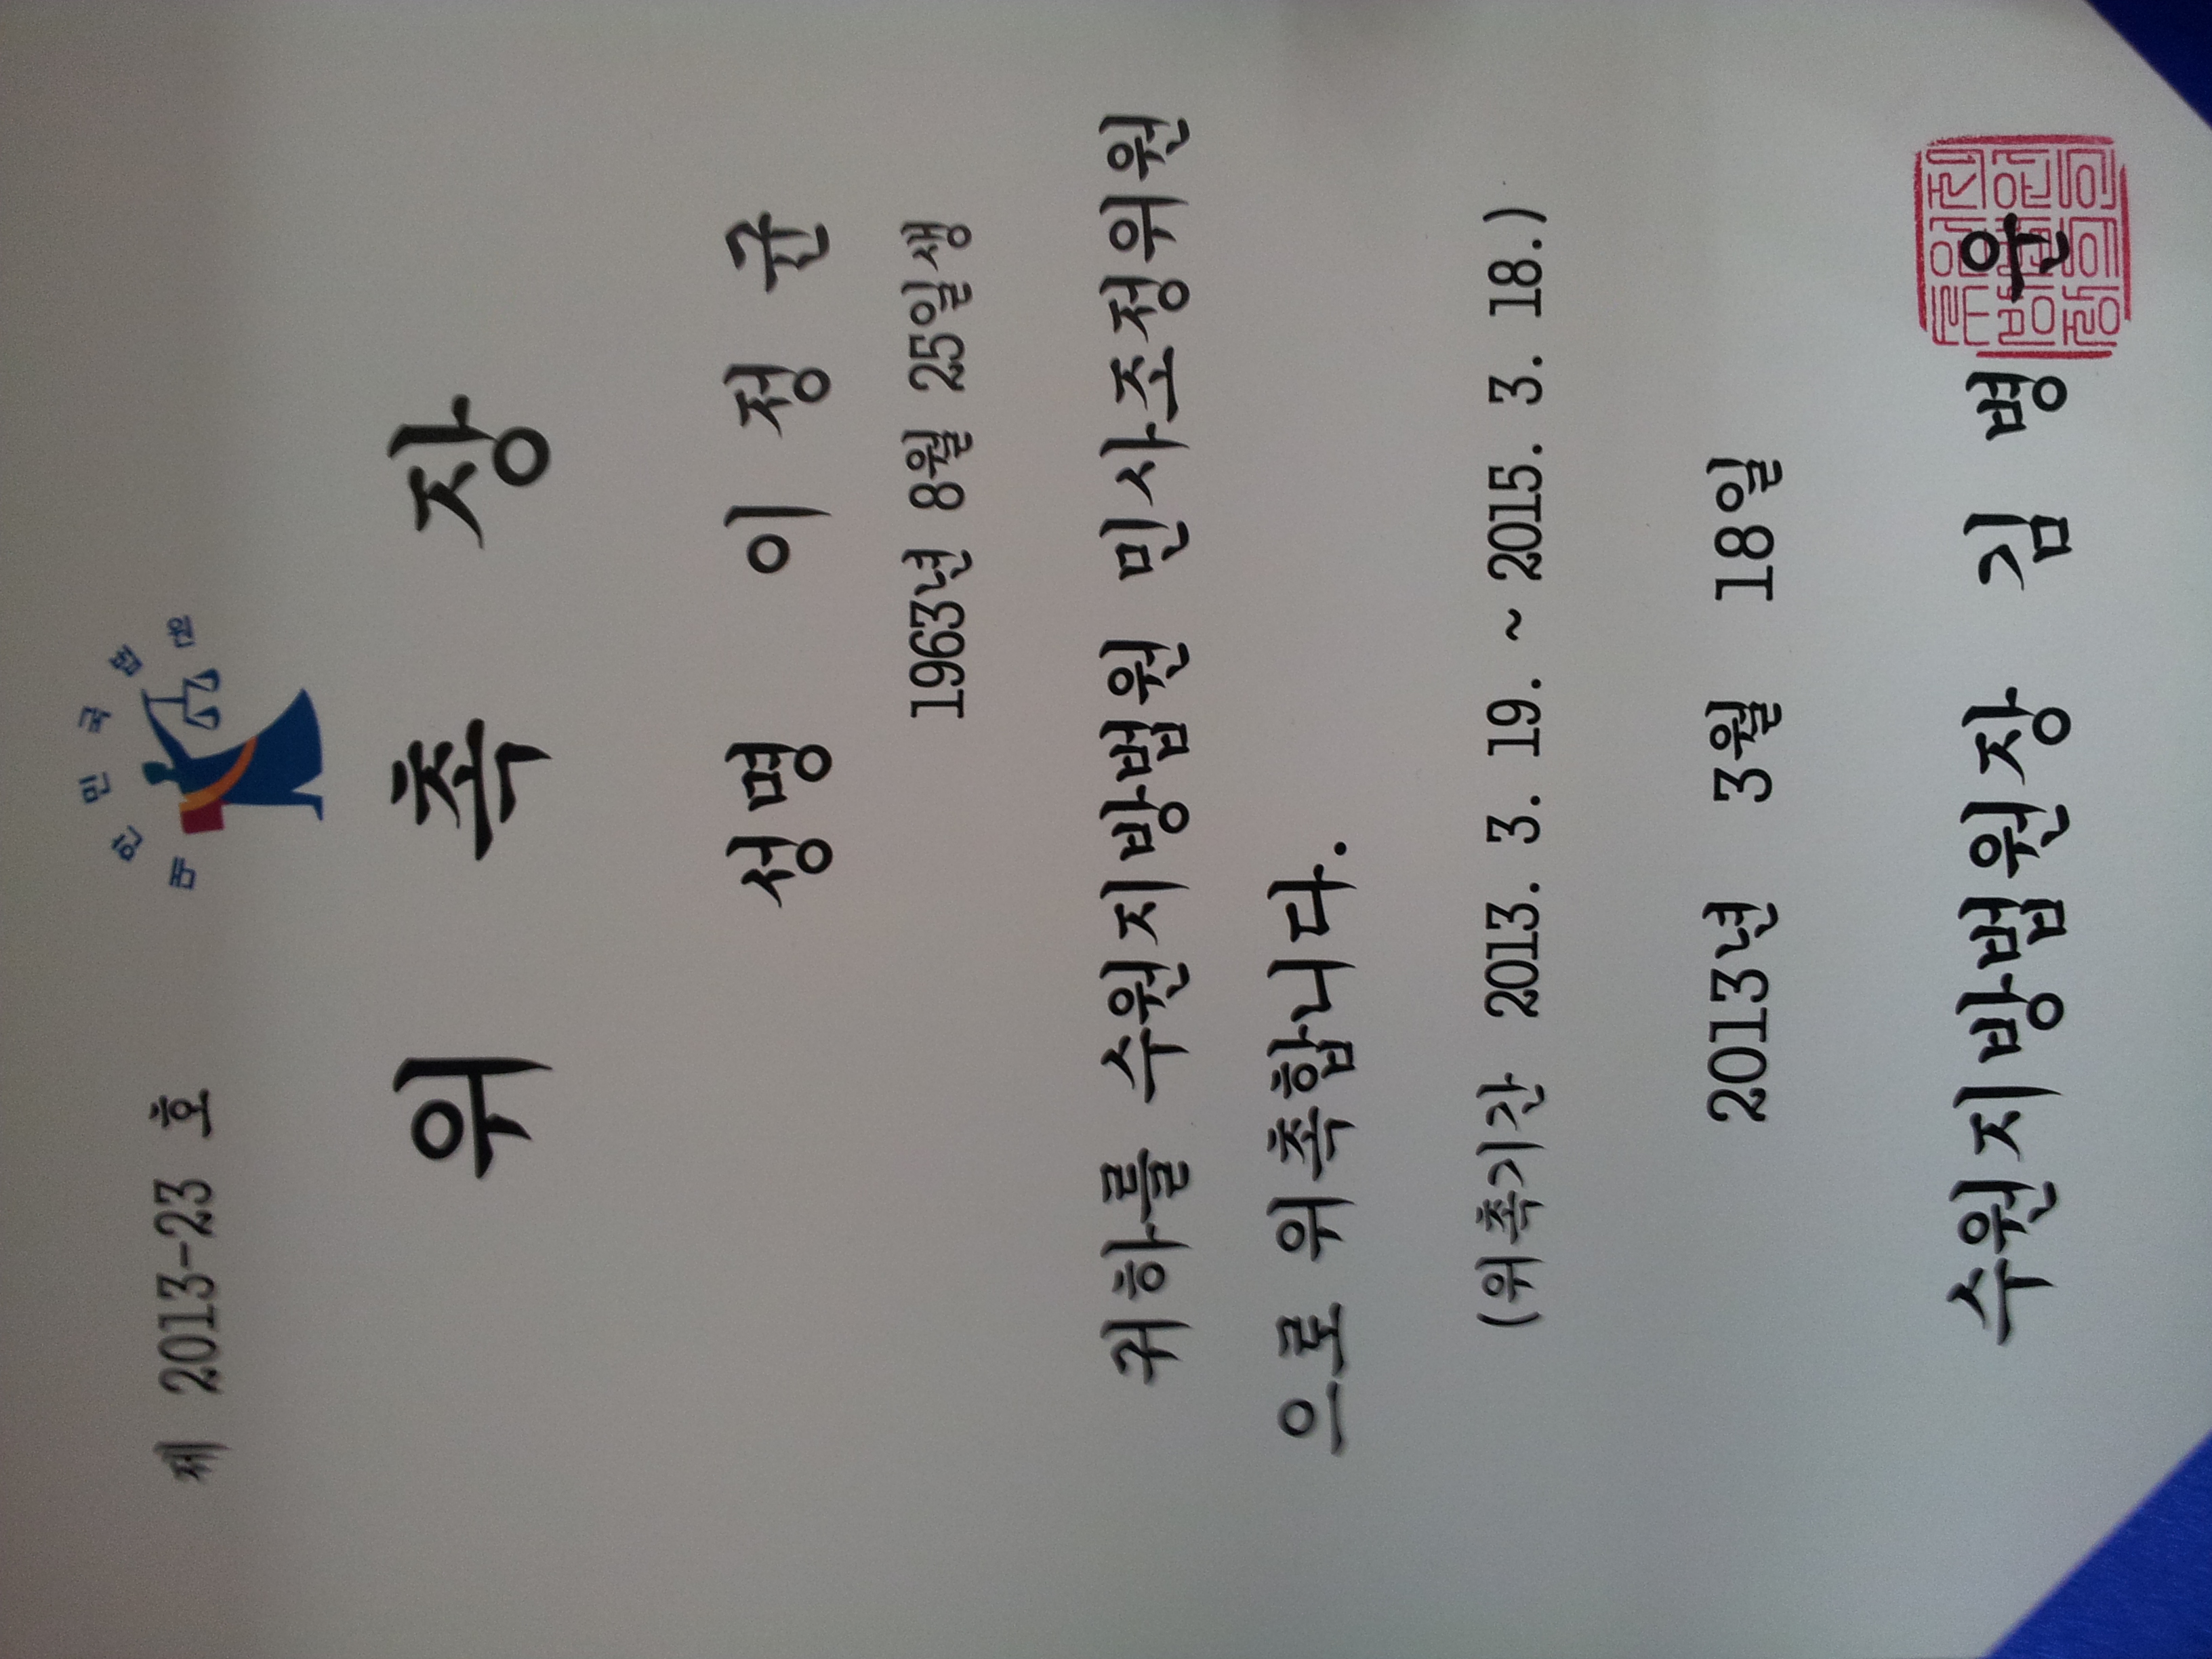 제 2013-23 호
대한민국법원
위 촉 장
성명 이 정 규
1963년 8월 25일생
귀하를 수원지방법원 민사조정위원
으로 위촉합니다.
(위촉기간 2013. 3. 19. ~ 2015. 3. 18.)
2013년 3월 18일
수원지방법원장 김 병 운